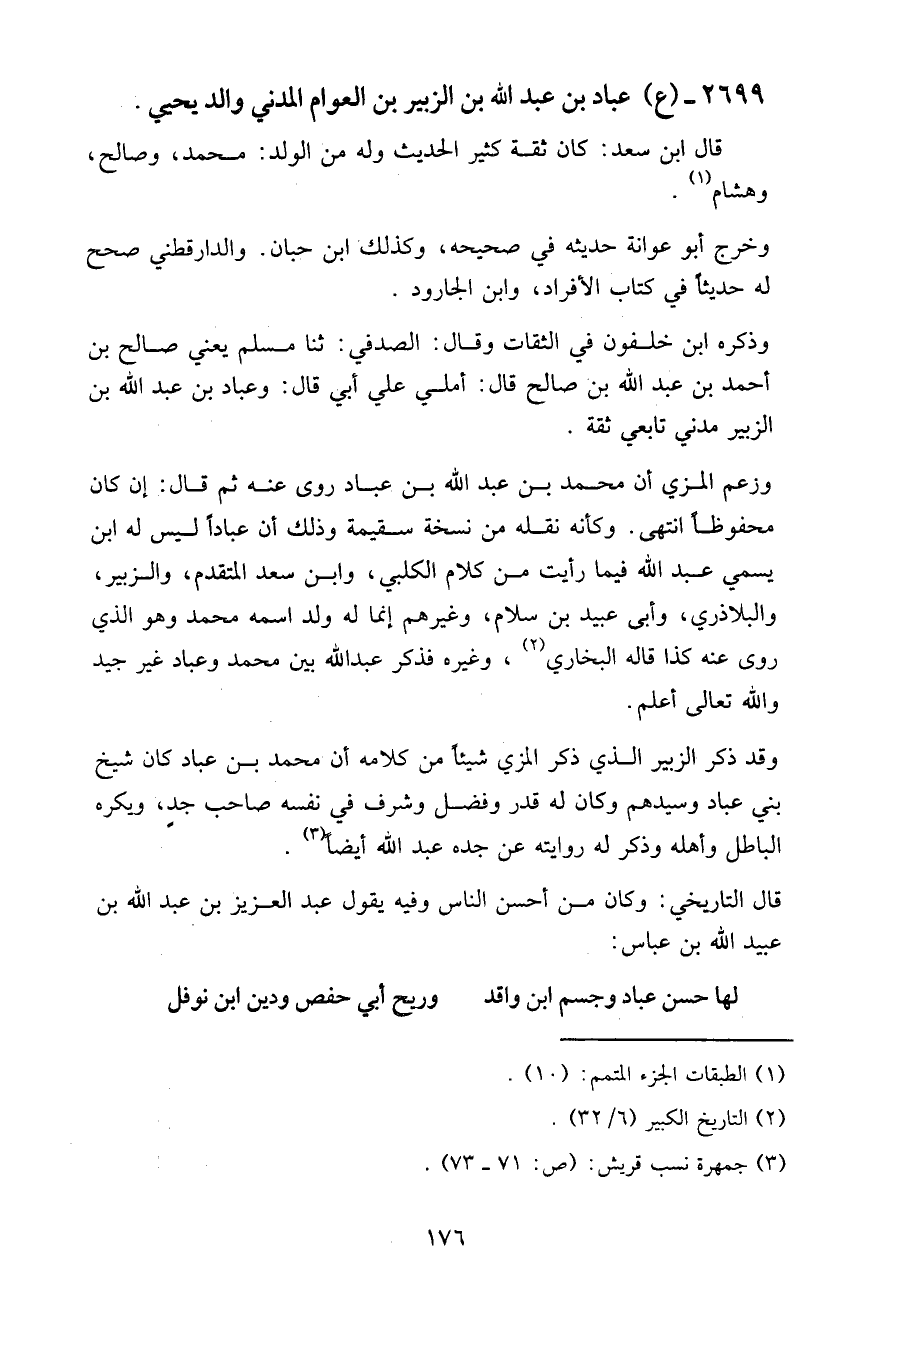 ٢٦٩٩ ـ (ع) عباد بن عبد الله بن الزبير بن العوام المدني والد يحيي .
قال ابن سعد: كان ثقة كثير الحديث وله من الولد: محمد، وصالح،
وهشام(١) .
وخرج أبو عوانة حديثه في صحيحه، وكذلك ابن حبان. والدارقطني صحح
له حديثاً في كتاب الأفراد، وابن الجارود .
وذكره ابن خلفون في الثقات وقال: الصدفي: ثنا مسلم يعني صالح بن
أحمد بن عبد الله بن صالح قال: أملي علي أبي قال: وعباد بن عبد الله بن
الزبير مدني تابعي ثقة .
وزعم المزي أن محمد بن عبد الله بن عباد روى عنه ثم قال: إن كان
محفوظاً انتهى. وكأنه نقله من نسخة سقيمة وذلك أن عباداً ليس له ابن
يسمي عبد الله فيما رأيت من كلام الكلبي، وابن سعد المتقدم، والزبير،
والبلاذري، وأبي عبيد بن سلام، وغيرهم إنما له ولد اسمه محمد وهو الذي
روى عنه كذا قاله البخاري(٢) ، وغيره فذكر عبدالله بين محمد وعباد غير جيد
والله تعالى أعلم.
وقد ذكر الزبير الذي ذكر المزي شيئاً من كلامه أن محمد بن عباد كان شيخ
بني عباد وسيدهم وكان له قدر وفضل وشرف في نفسه صاحب جد، ويكره
الباطل وأهله وذكر له روايته عن جده عبد الله أيضاً(٣) .
قال التاريخي: وكان من أحسن الناس وفيه يقول عبد العزيز بن عبد الله بن
عبيد الله بن عباس:
لها حسن عباد وجسم ابن واقد وريح أبي حفص ودين ابن نوفل
(١) الطبقات الجزء المتمم: (١٠) .
(٢) التاريخ الكبير (٦/ ٣٢) .
(٣) جمهرة نسب قريش: (ص: ٧١ ـ ٧٣) .
١٧٦